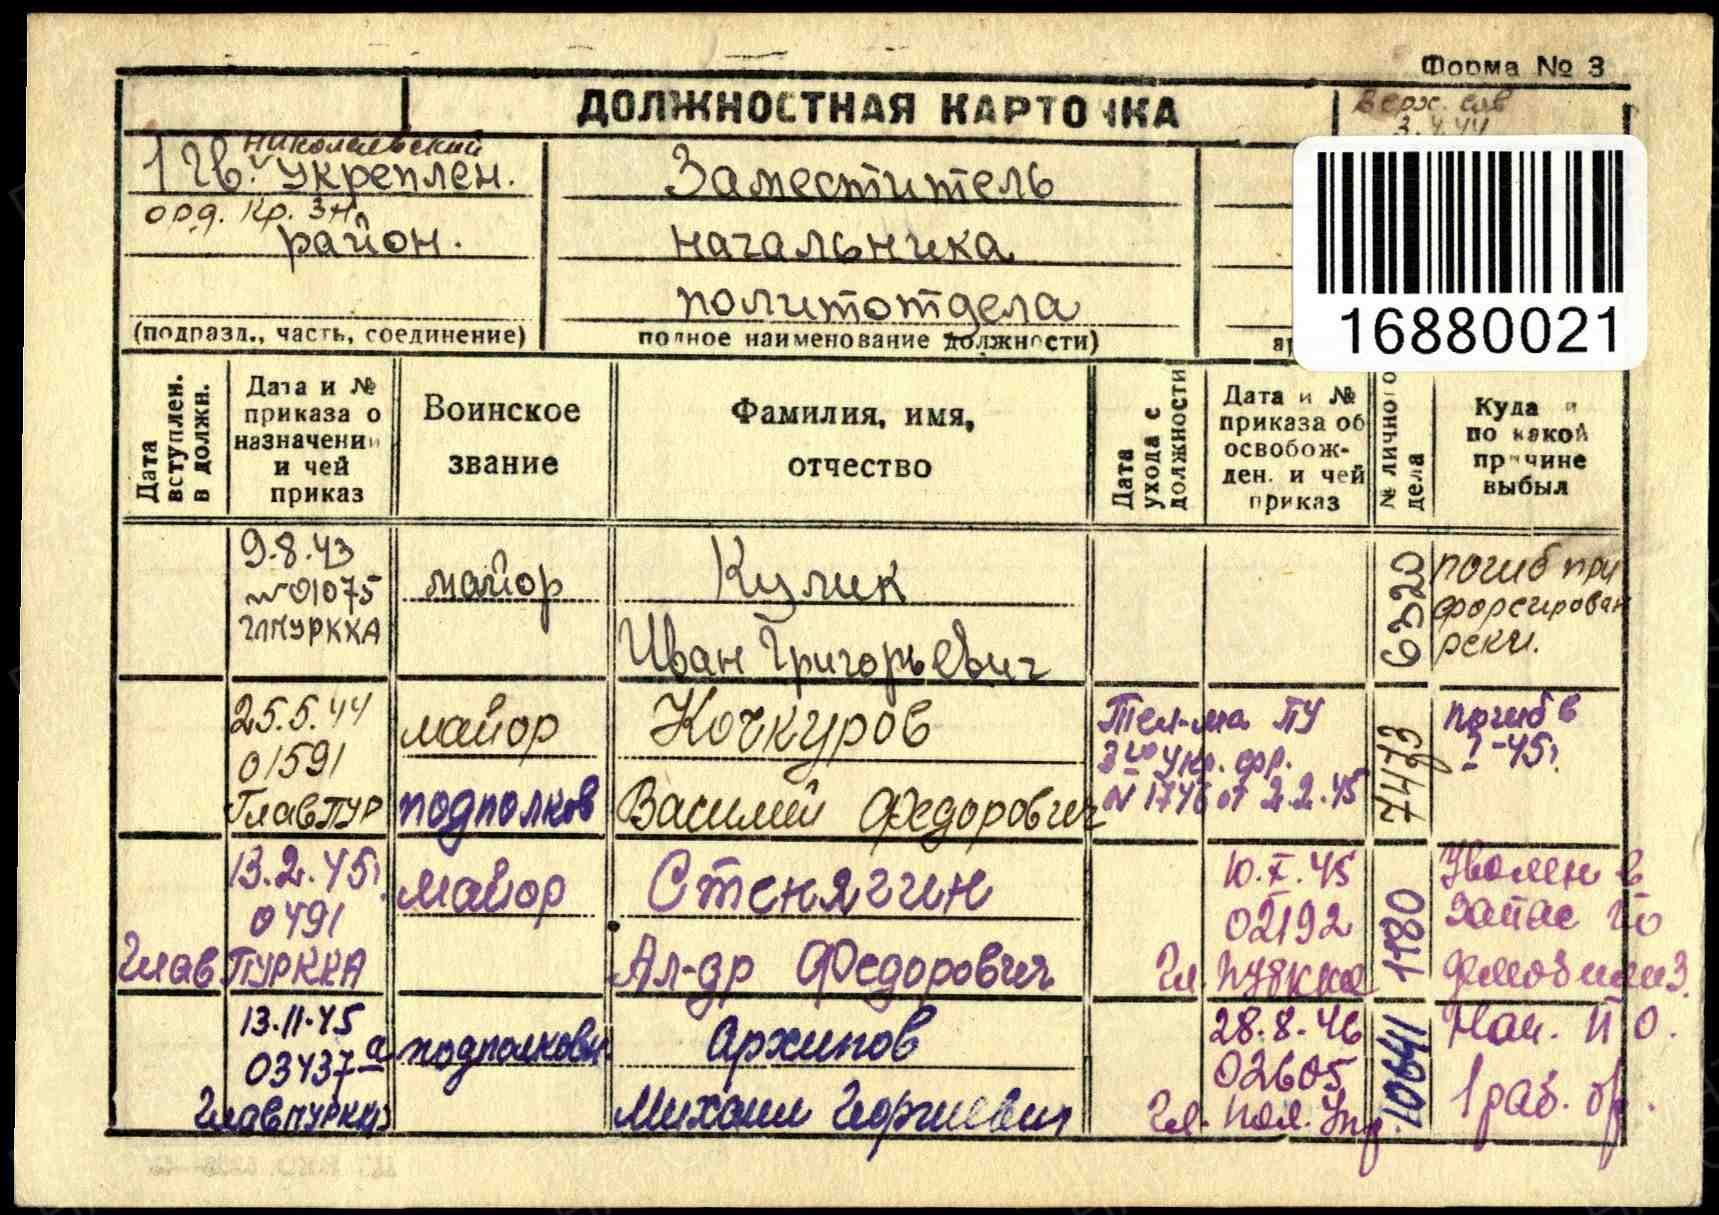 Форма № 3
ДОЛЖНОСТНАЯ КАРТОЧКА
Верх.
3.4.44
Николаевский
1 Гв. укреплен.
орд. Кр. Зн.
район.
(подразд., часть, соединение)
Заместитель
начальника
политотдела
полное наименование должности)
16880021
Дата вступлен. в должн.
Дата и №
приказа о
назначении
и чей
приказ
Воинское
звание
Фамилия, имя,
отчество
Дата ухода с должности
Дата и №
приказа об
освобож-
ден. и чей
приказ
№ личного дела
Куда и
по какой
причине
выбыл
9.8.43
№01075
ГЛПУРККА
майор
Кулик
Иван Григорьевич
6320
погиб при
форсирован
реки.
25.5.44
01591
ГлавПУР
майор
подполков
Кочкуров
Василий Федорович
Тел-ма ПУ
3го Укр. фр.
№ 1746 от 2.2.45
7473
погиб в
I-45г
13.2.45г.
0491
Глав ПУРККА
майор
Стенягин
Ал-др Федорович
10.X.45
02192
Гл. ПУРККА
1180
Уволен в
запас по
13.11.45
03437а
ГлавПУРККА
подполковн.
Архипов
Михаил Георгиевич
28.8.46
02605
Гл. Пол. Упр.
10641
Нач. ПО.
1 бр.